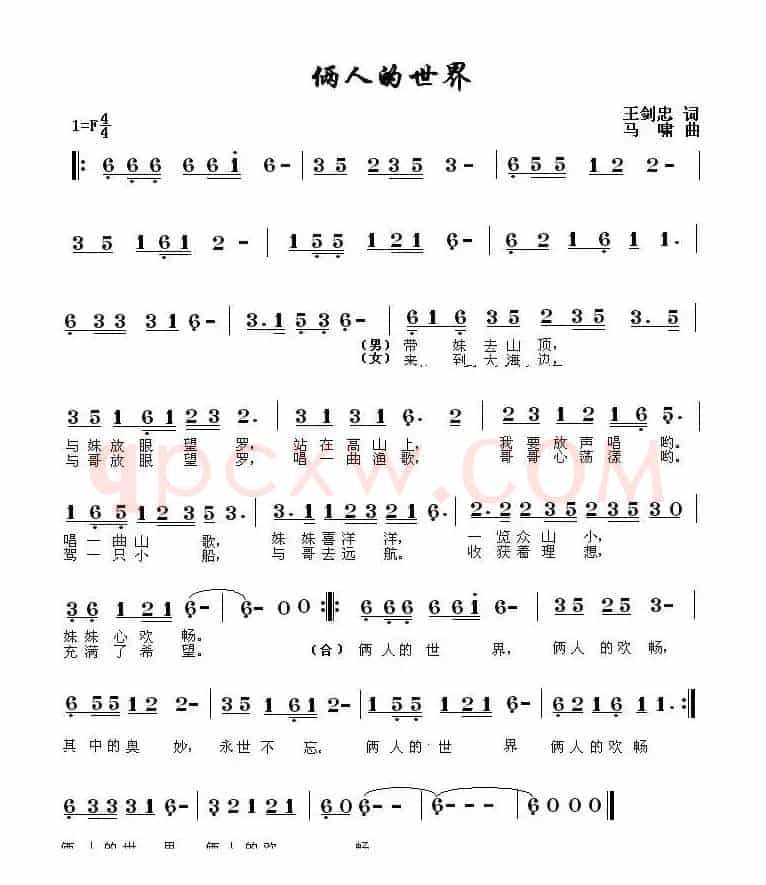 俩人的世界
王剑忠 词
1=F 4/4
马 啸 曲
6 6 6 6 6 i 6 - 3 5 2 3 5 3 - 6 5 5 1 2 2 -
3 5 1 6 1 2 - 1 5 5 1 2 1 6 - 6 2 1 6 1 1.
6 3 3 3 1 6 - 3. 1 5 3 6 - 6 1 6 3 5 2 3 5 3.
(男) 带 妹 去 山 顶,
(女) 来 到 大 海 边,
3 5 1 6 1 2 3 2. 3 1 3 1 6. 2 2 3 1 2 1 6 5.
与 妹 放 眼 望 罗, 站 在 高 山 上, 我 要 放 声 唱 哟。
与 哥 放 眼 望 罗, 唱 一 曲 渔 歌, 哥 哥 心 荡 漾 哟。
qpcxw.com
1 6 5 1 2 3 5 3. 3. 1 1 2 3 2 1 6. 2. 2 2 3 5 2 3 5 3 0
唱 一 曲 山 歌, 妹 妹 喜 洋 洋, 一 览 众 山 小,
驾 一 只 小 船, 与 哥 去 远 航。 收 获 着 理 想,
3 6 1 2 1 6 - 6 - 0 0 6 6 6 6 6 i 6 - 3 5 2 5 3 -
妹 妹 心 欢 畅。
充 满 了 希 望。 (合) 俩 人 的 世 界, 俩 人 的 欢 畅,
6 5 5 1 2 2 - 3 5 1 6 1 2 - 1 5 5 1 2 1 6 - 6 2 1 6 1 1.
其 中 的 奥 妙, 永 世 不 忘。 俩 人 的 世 界 俩 人 的 欢 畅
6 3 3 3 1 6 - 3 2 1 2 1 6 0 6 - - 6 - - - 6 0 0 0
俩 人 的 世 界 俩 人 的 欢 畅